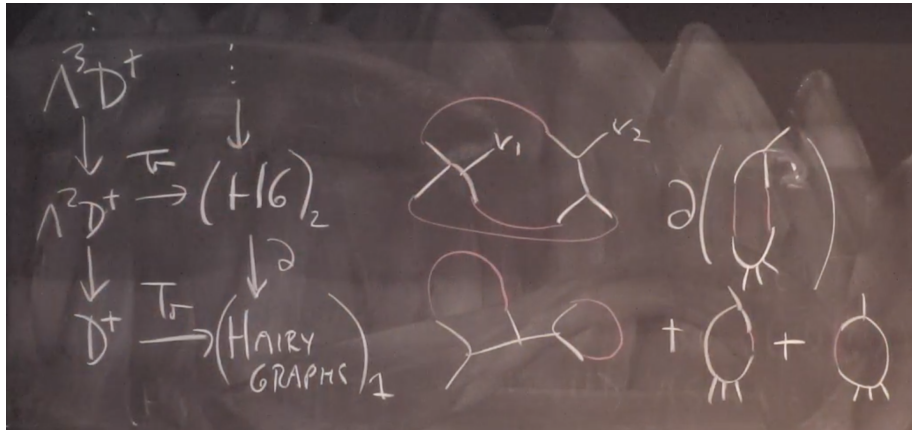 ⋮ ⋮
Λ³D⁺
Tr
Λ²D⁺ → (HG)₂
∂
Tr
D⁺ → (HAIRY GRAPHS)₁
v₁
v₂
∂( )
+ +